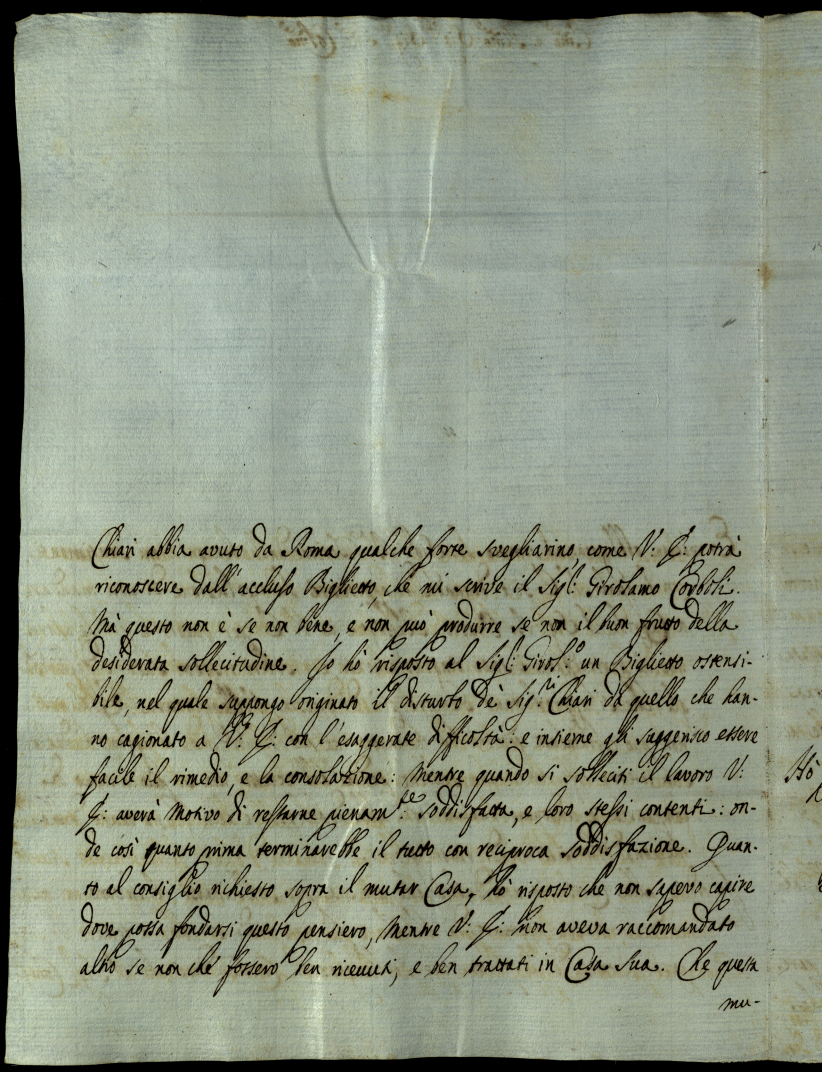 Chiari abbia avuto da Roma qualche forte svegliarino, come V: E: potrà
riconoscere dall'accluso Biglietto, che mi scrive il Sig.r Girolamo Corboli.
Mà questo non è se non bene, e non può produrre se non il buon frutto della
desiderata sollecitudine. Io hò risposto al Sig.r Girol.o un Biglietto ostensi-
bile, nel quale suppongo originato il disturbo de' Sig.ri Chiari da quello che han-
no cagionato a V: E: con l'esaggerate difficoltà: e insieme gli suggerisco essere
facile il rimedio, e la consolazione: Mentre quando si solleciti il lavoro V:
E: averà Motivo di restarne pienam.te soddisfatta, e loro stessi contenti: on-
de così quanto prima terminarebbe il tutto con reciproca Soddisfazione. Quan-
to al consiglio richiesto sopra il mutar Casa, hò risposto che non sapevo capire
dove possa fondarsi questo pensiero, Mentre V: E: non aveva raccomandato
altro se non che fossero ben ricevuti, e ben trattati in Casa sua. Che questa
mu-
Hò